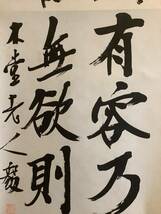 有容乃
無欲則
木堂老人毅